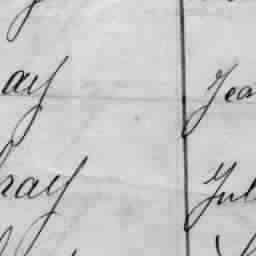 ay Jea
hay Jul